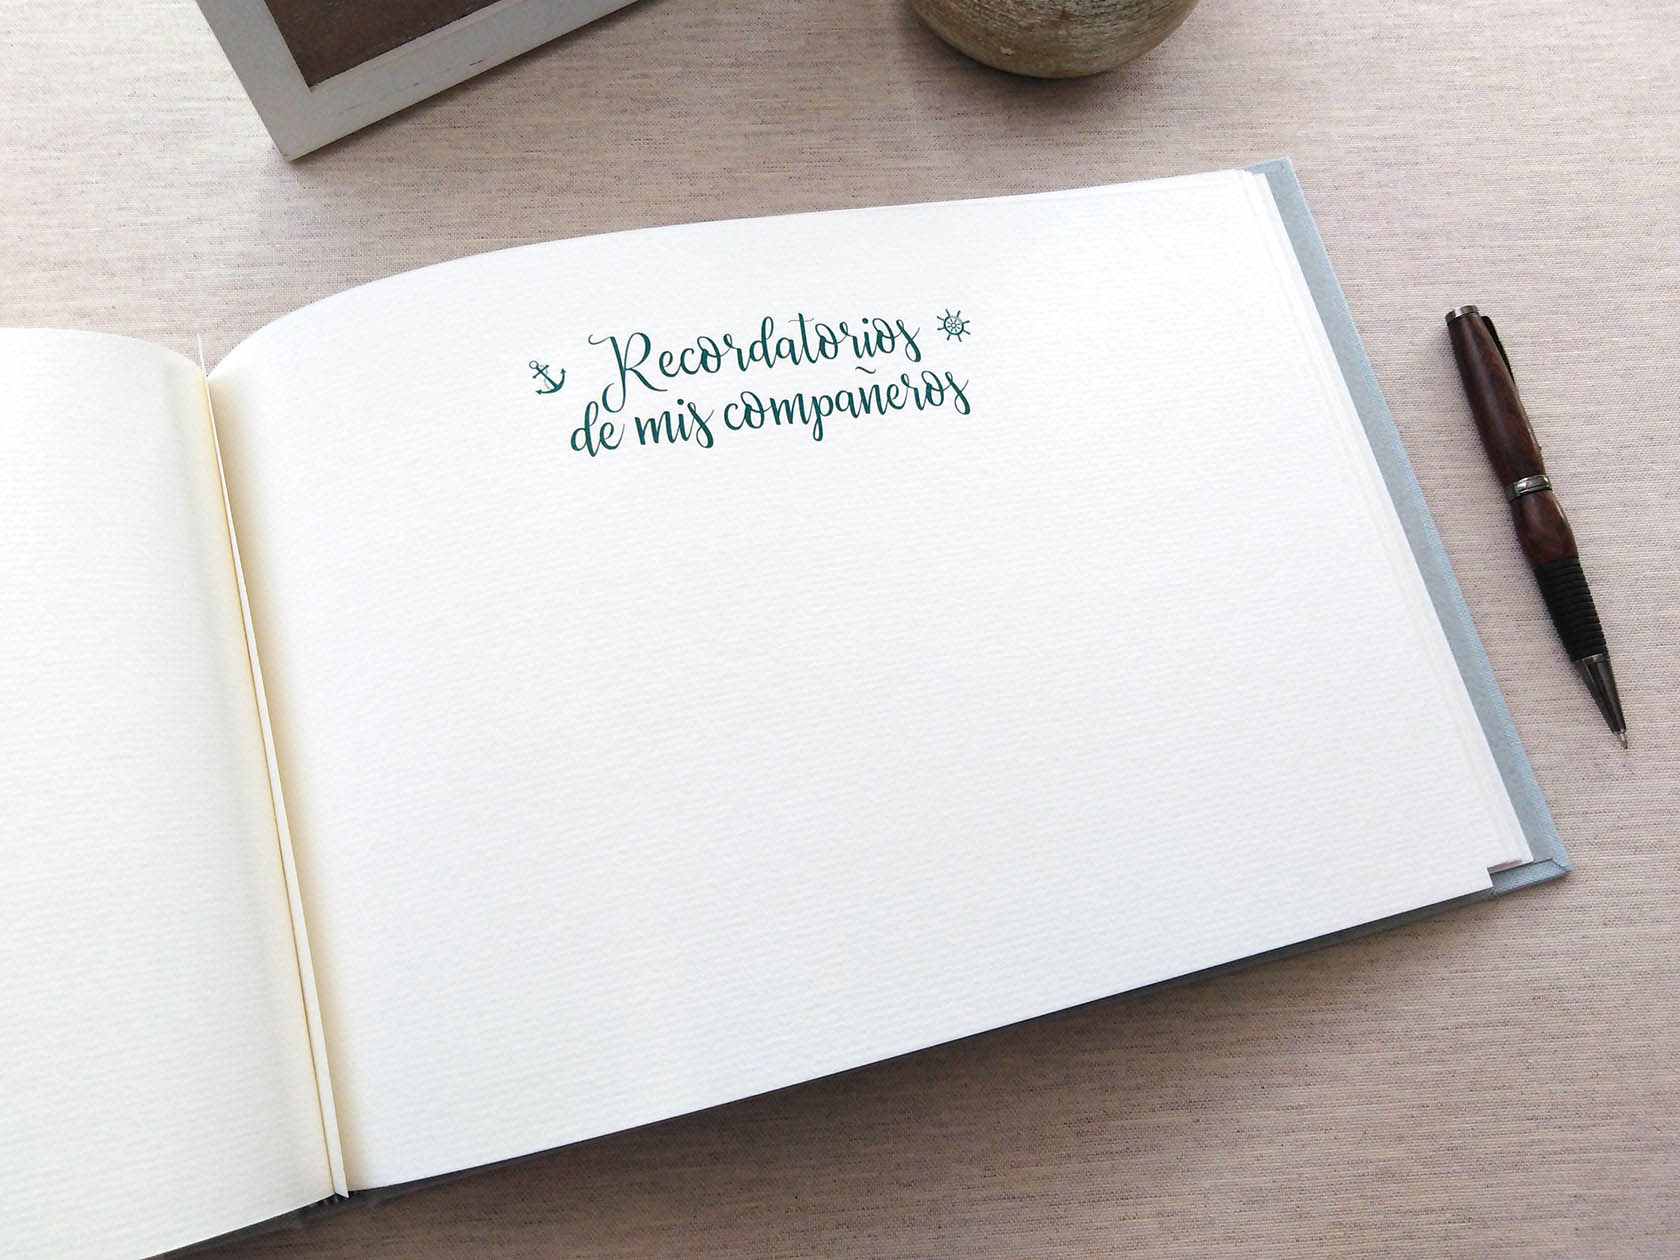 Recordatorios
de mis compañeros